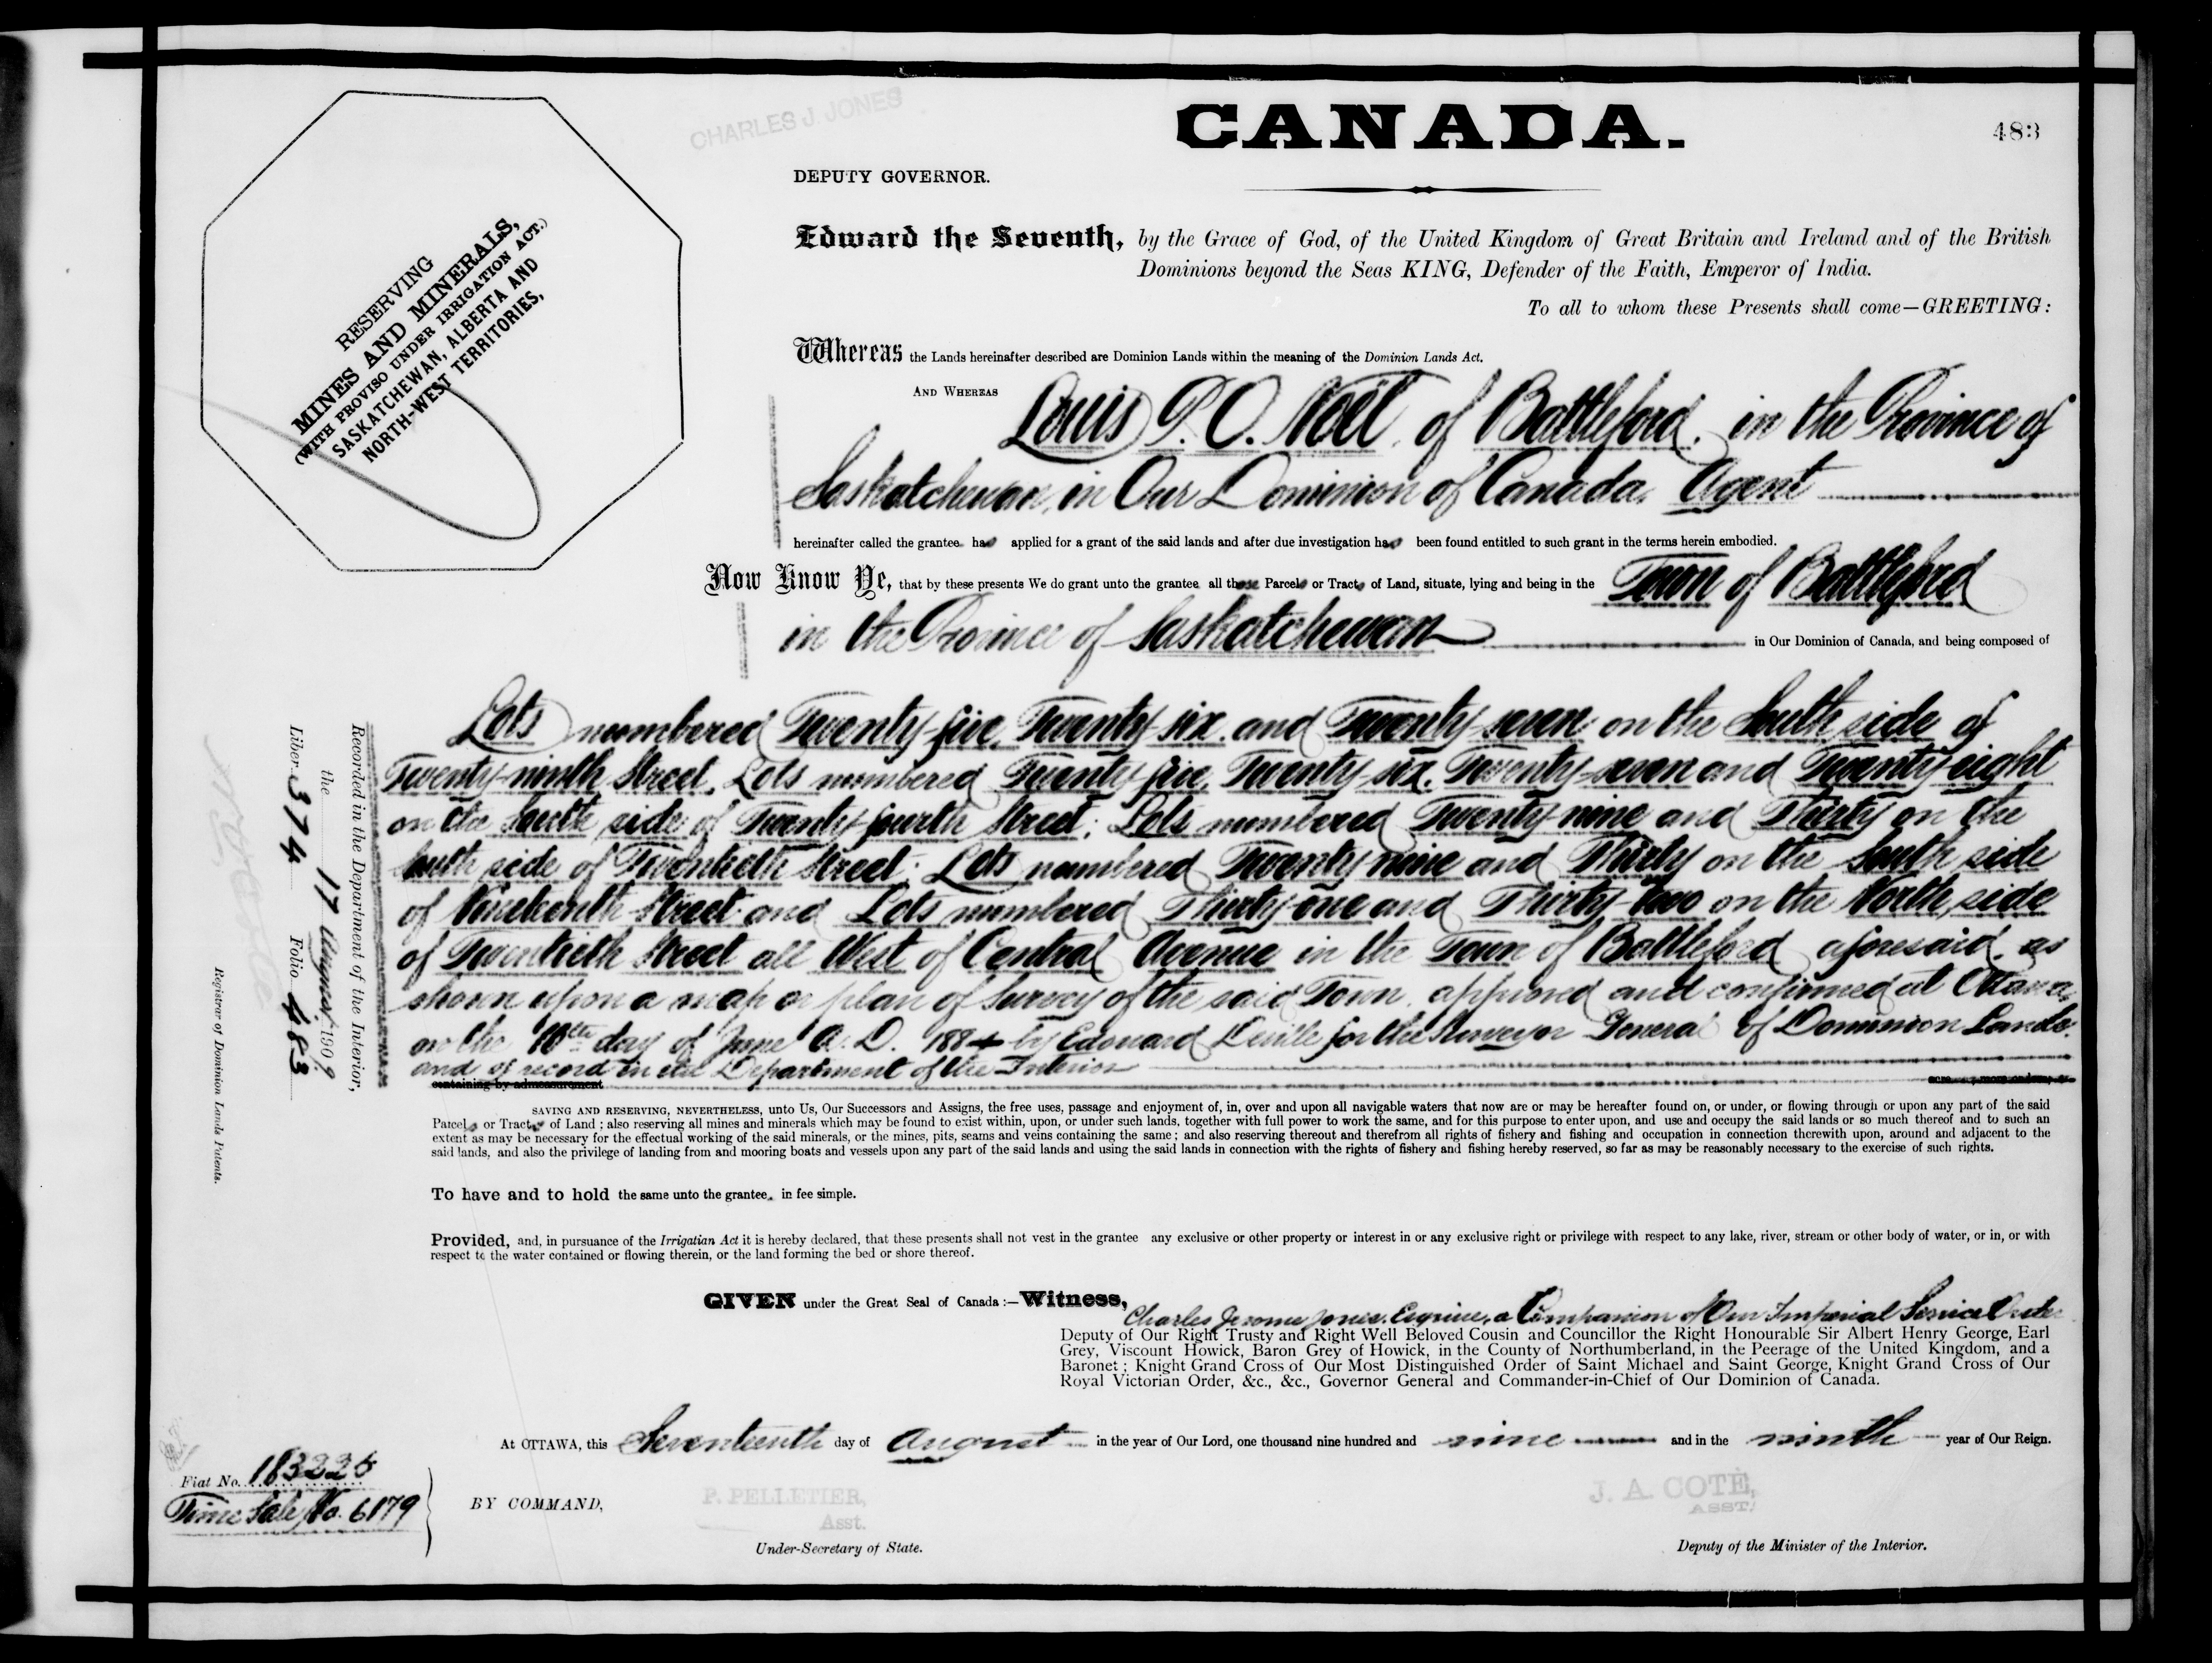 CHARLES J. JONES
CANADA.
483
DEPUTY GOVERNOR.
RESERVING
MINES AND MINERALS,
(WITH PROVISO UNDER IRRIGATION ACT.)
SASKATCHEWAN, ALBERTA AND
NORTH-WEST TERRITORIES,
Edward the Seventh, by the Grace of God, of the United Kingdom of Great Britain and Ireland and of the British
Dominions beyond the Seas KING, Defender of the Faith, Emperor of India.
To all to whom these Presents shall come—GREETING:
Whereas the Lands hereinafter described are Dominion Lands within the meaning of the Dominion Lands Act.
AND WHEREAS Louis P. O. Noël, of Battleford, in the Province of
Saskatchewan, in Our Dominion of Canada, Agent
hereinafter called the grantee has applied for a grant of the said lands and after due investigation has been found entitled to such grant in the terms herein embodied.
Now Know Ye, that by these presents We do grant unto the grantee all those Parcels or Tracts of Land, situate, lying and being in the Town of Battleford
in the Province of Saskatchewan in Our Dominion of Canada, and being composed of
Lots numbered Twenty-five, Twenty six and Twenty-seven on the South side of
Twenty-ninth Street, Lots numbered Twenty-five, Twenty-six, Twenty-seven and Twenty-eight
on the South side of Twenty-fourth Street; Lots numbered Twenty nine and Thirty on the
South side of Twentieth Street; Lots numbered Twenty nine and Thirty on the South side
of Nineteenth Street and Lots numbered Thirty-one and Thirty-two on the North side
of Twentieth Street all West of Central Avenue in the Town of Battleford aforesaid, as
shown upon a map or plan of Survey of the said Town, approved and confirmed at Ottawa,
on the 10th day of June A.D. 1884 by Edouard Deville for the Surveyor General of Dominion Lands
and of record in the Department of the Interior
containing by admeasurement
SAVING AND RESERVING, NEVERTHELESS, unto Us, Our Successors and Assigns, the free uses, passage and enjoyment of, in, over and upon all navigable waters that now are or may be hereafter found on, or under, or flowing through or upon any part of the said
Parcels or Tracts of Land; also reserving all mines and minerals which may be found to exist within, upon, or under such lands, together with full power to work the same, and for this purpose to enter upon, and use and occupy the said lands or so much thereof and to such an
extent as may be necessary for the effectual working of the said minerals, or the mines, pits, seams and veins containing the same; and also reserving thereout and therefrom all rights of fishery and fishing and occupation in connection therewith upon, around and adjacent to the
said lands, and also the privilege of landing from and mooring boats and vessels upon any part of the said lands and using the said lands in connection with the rights of fishery and fishing hereby reserved, so far as may be reasonably necessary to the exercise of such rights.
To have and to hold the same unto the grantee, in fee simple.
Provided, and, in pursuance of the Irrigatian Act it is hereby declared, that these presents shall not vest in the grantee any exclusive or other property or interest in or any exclusive right or privilege with respect to any lake, river, stream or other body of water, or in, or with
respect to the water contained or flowing therein, or the land forming the bed or shore thereof.
GIVEN under the Great Seal of Canada:—Witness,
Charles Jerome Jones, Esquire, a Companion of Our Imperial Service Order
Deputy of Our Right Trusty and Right Well Beloved Cousin and Councillor the Right Honourable Sir Albert Henry George, Earl
Grey, Viscount Howick, Baron Grey of Howick, in the County of Northumberland, in the Peerage of the United Kingdom, and a
Baronet; Knight Grand Cross of Our Most Distinguished Order of Saint Michael and Saint George, Knight Grand Cross of Our
Royal Victorian Order, &c., &c., Governor General and Commander-in-Chief of Our Dominion of Canada.
At OTTAWA, this Seventeenth day of August in the year of Our Lord, one thousand nine hundred and nine and in the ninth year of Our Reign.
Fiat No. 183225
Time Sale No. 6179
BY COMMAND,
P. PELLETIER,
Asst.
Under-Secretary of State.
J. A. COTÉ,
ASST.
Deputy of the Minister of the Interior.
Recorded in the Department of the Interior,
the 17 August, 1909
Liber 374 Folio 483
Registrar of Dominion Lands Patents.